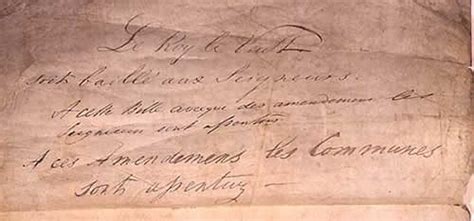 Le Roy le Veult
soit baillé aux Seigneurs.
A ceste Bille avecque des amendemens les
Seigneurs sont assentus
A ces Amendemens les Communes
sont assentuz